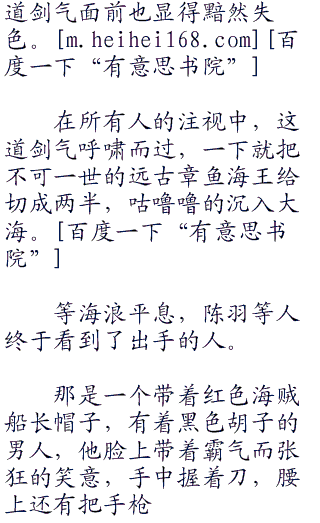 道剑气面前也显得黯然失
色。[m.heihei168.com][百
度一下“有意思书院”]
在所有人的注视中，这
道剑气呼啸而过，一下就把
不可一世的远古章鱼海王给
切成两半，咕噜噜的沉入大
海。[百度一下“有意思书
院”]
等海浪平息，陈羽等人
终于看到了出手的人。
那是一个带着红色海贼
船长帽子，有着黑色胡子的
男人，他脸上带着霸气而张
狂的笑意，手中握着刀，腰
上还有把手枪